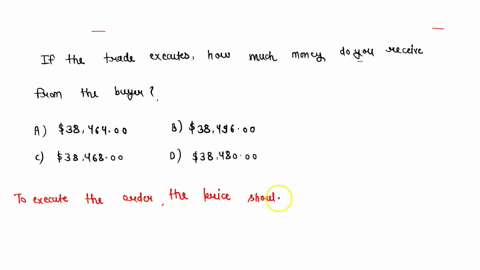 If the trade executes, how much money do you receive
from the buyer?
A) $38,464.00 B) $38,496.00
C) $38,468.00 D) $38,480.00
To execute the order, the price shoul.